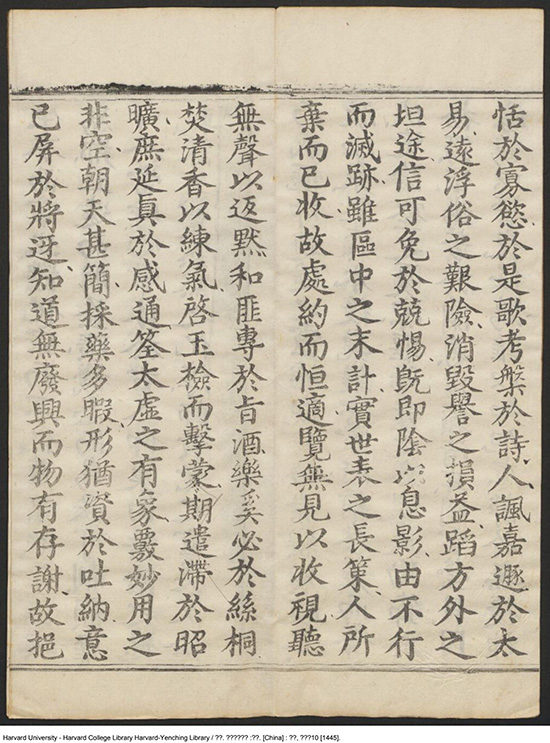 恬於寡慾於是歌考槃於詩人諷嘉遯於太
易遠浮俗之艱險消毀譽之損益蹈方外之
坦途信可免於兢惕旣即陰以息影由不行
而滅跡雖區中之末計實世表之長策人所
棄而已收故處約而恒適覽無見以收視聽
無聲以返默和匪專於旨酒樂奚必於絲桐
焚清香以練氣啓玉檢而擊蒙期遣滯於昭
曠庶延眞於感通筌太虛之有象覈妙用之
非空朝天甚簡採藥多暇形猶資於吐納意
已屏於將迓知道無廢興而物有存謝故挹
Harvard University - Harvard College Library Harvard-Yenching Library / ??. ?????? :??. [China] : ??, ???10 [1445].